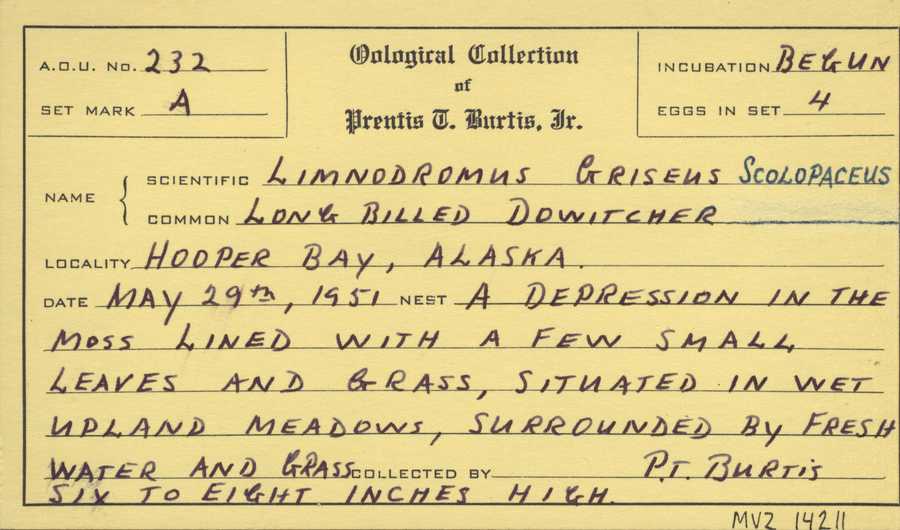 A.O.U. No. 232
SET MARK A
Oological Collection
of
Prentis T. Burtis, Jr.
INCUBATION BEGUN
EGGS IN SET 4
NAME
SCIENTIFIC LIMNODROMUS GRISEUS SCOLOPACEUS
COMMON LONG BILLED DOWITCHER
LOCALITY HOOPER BAY, ALASKA.
DATE MAY 29th, 1951 NEST A DEPRESSION IN THE
MOSS LINED WITH A FEW SMALL
LEAVES AND GRASS, SITUATED IN WET
UPLAND MEADOWS, SURROUNDED BY FRESH
WATER AND GRASS COLLECTED BY P.T. BURTIS
SIX TO EIGHT INCHES HIGH.
MVZ 14211